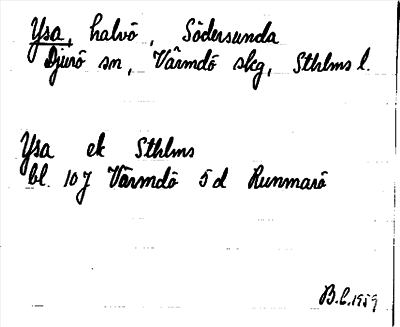 Ysa, halvö, Södersunda
Djurö sn, Värmdö skg, Sthlms l.
Ysa ek Sthlms
bl. 10J Värmdö 5d Runmarö
B.C. 1959